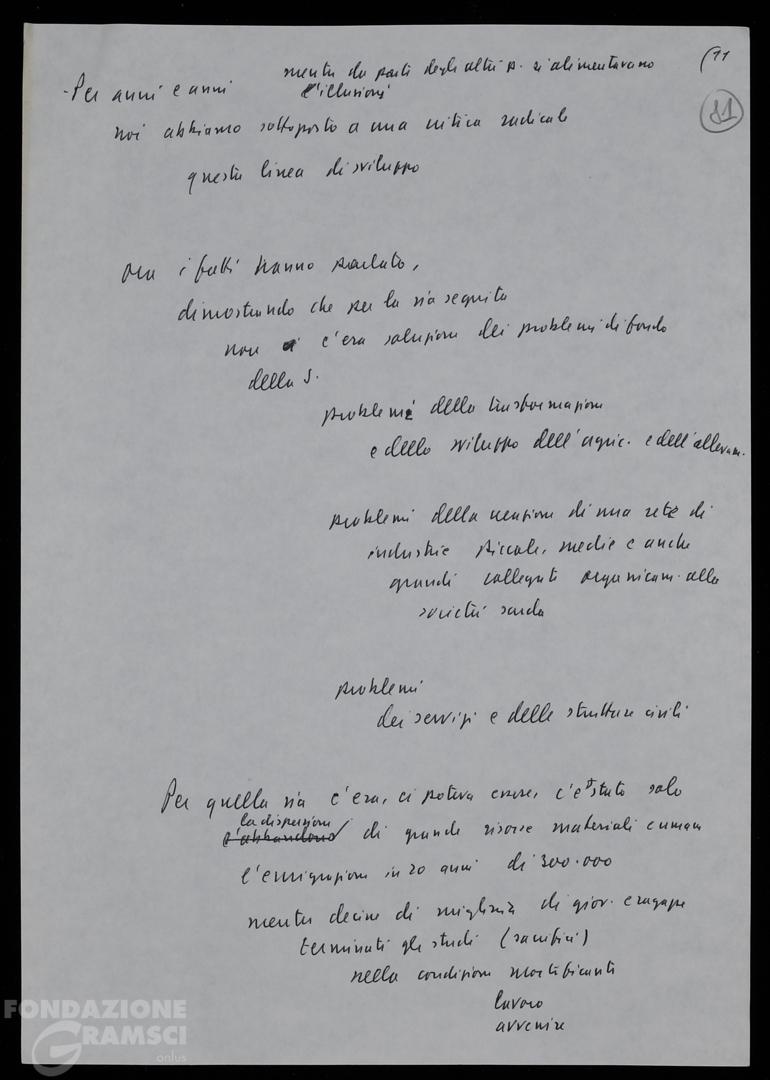 (11
81
mentre da parte degli altri p. si alimentavano
- Per anni e anni l'illusioni
noi abbiamo sottoposto a una critica radicale
questa linea di sviluppo
ora i fatti hanno parlato,
dimostrando che per la via seguita
non c'era soluzione dei problemi di fondo
della S.
problemi della trasformazione
e dello sviluppo dell'agric. e dell'allevam.
problemi della creazione di una rete di
industrie piccole, medie e anche
grandi collegate organicam. alla
società sarda
problemi
dei servizi e delle strutture civili
Per quella via c'era, ci poteva essere, c'è stato solo
la dispersione
l'abbandono di grande risorse materiali e umane
l'emigrazione in 20 anni di 300.000
mentre decine di migliaia di giov. e ragazze
terminati gli studi (sacrifici)
nella condizione mortificante
lavoro
avvenire
FONDAZIONE
GRAMSCI
onlus